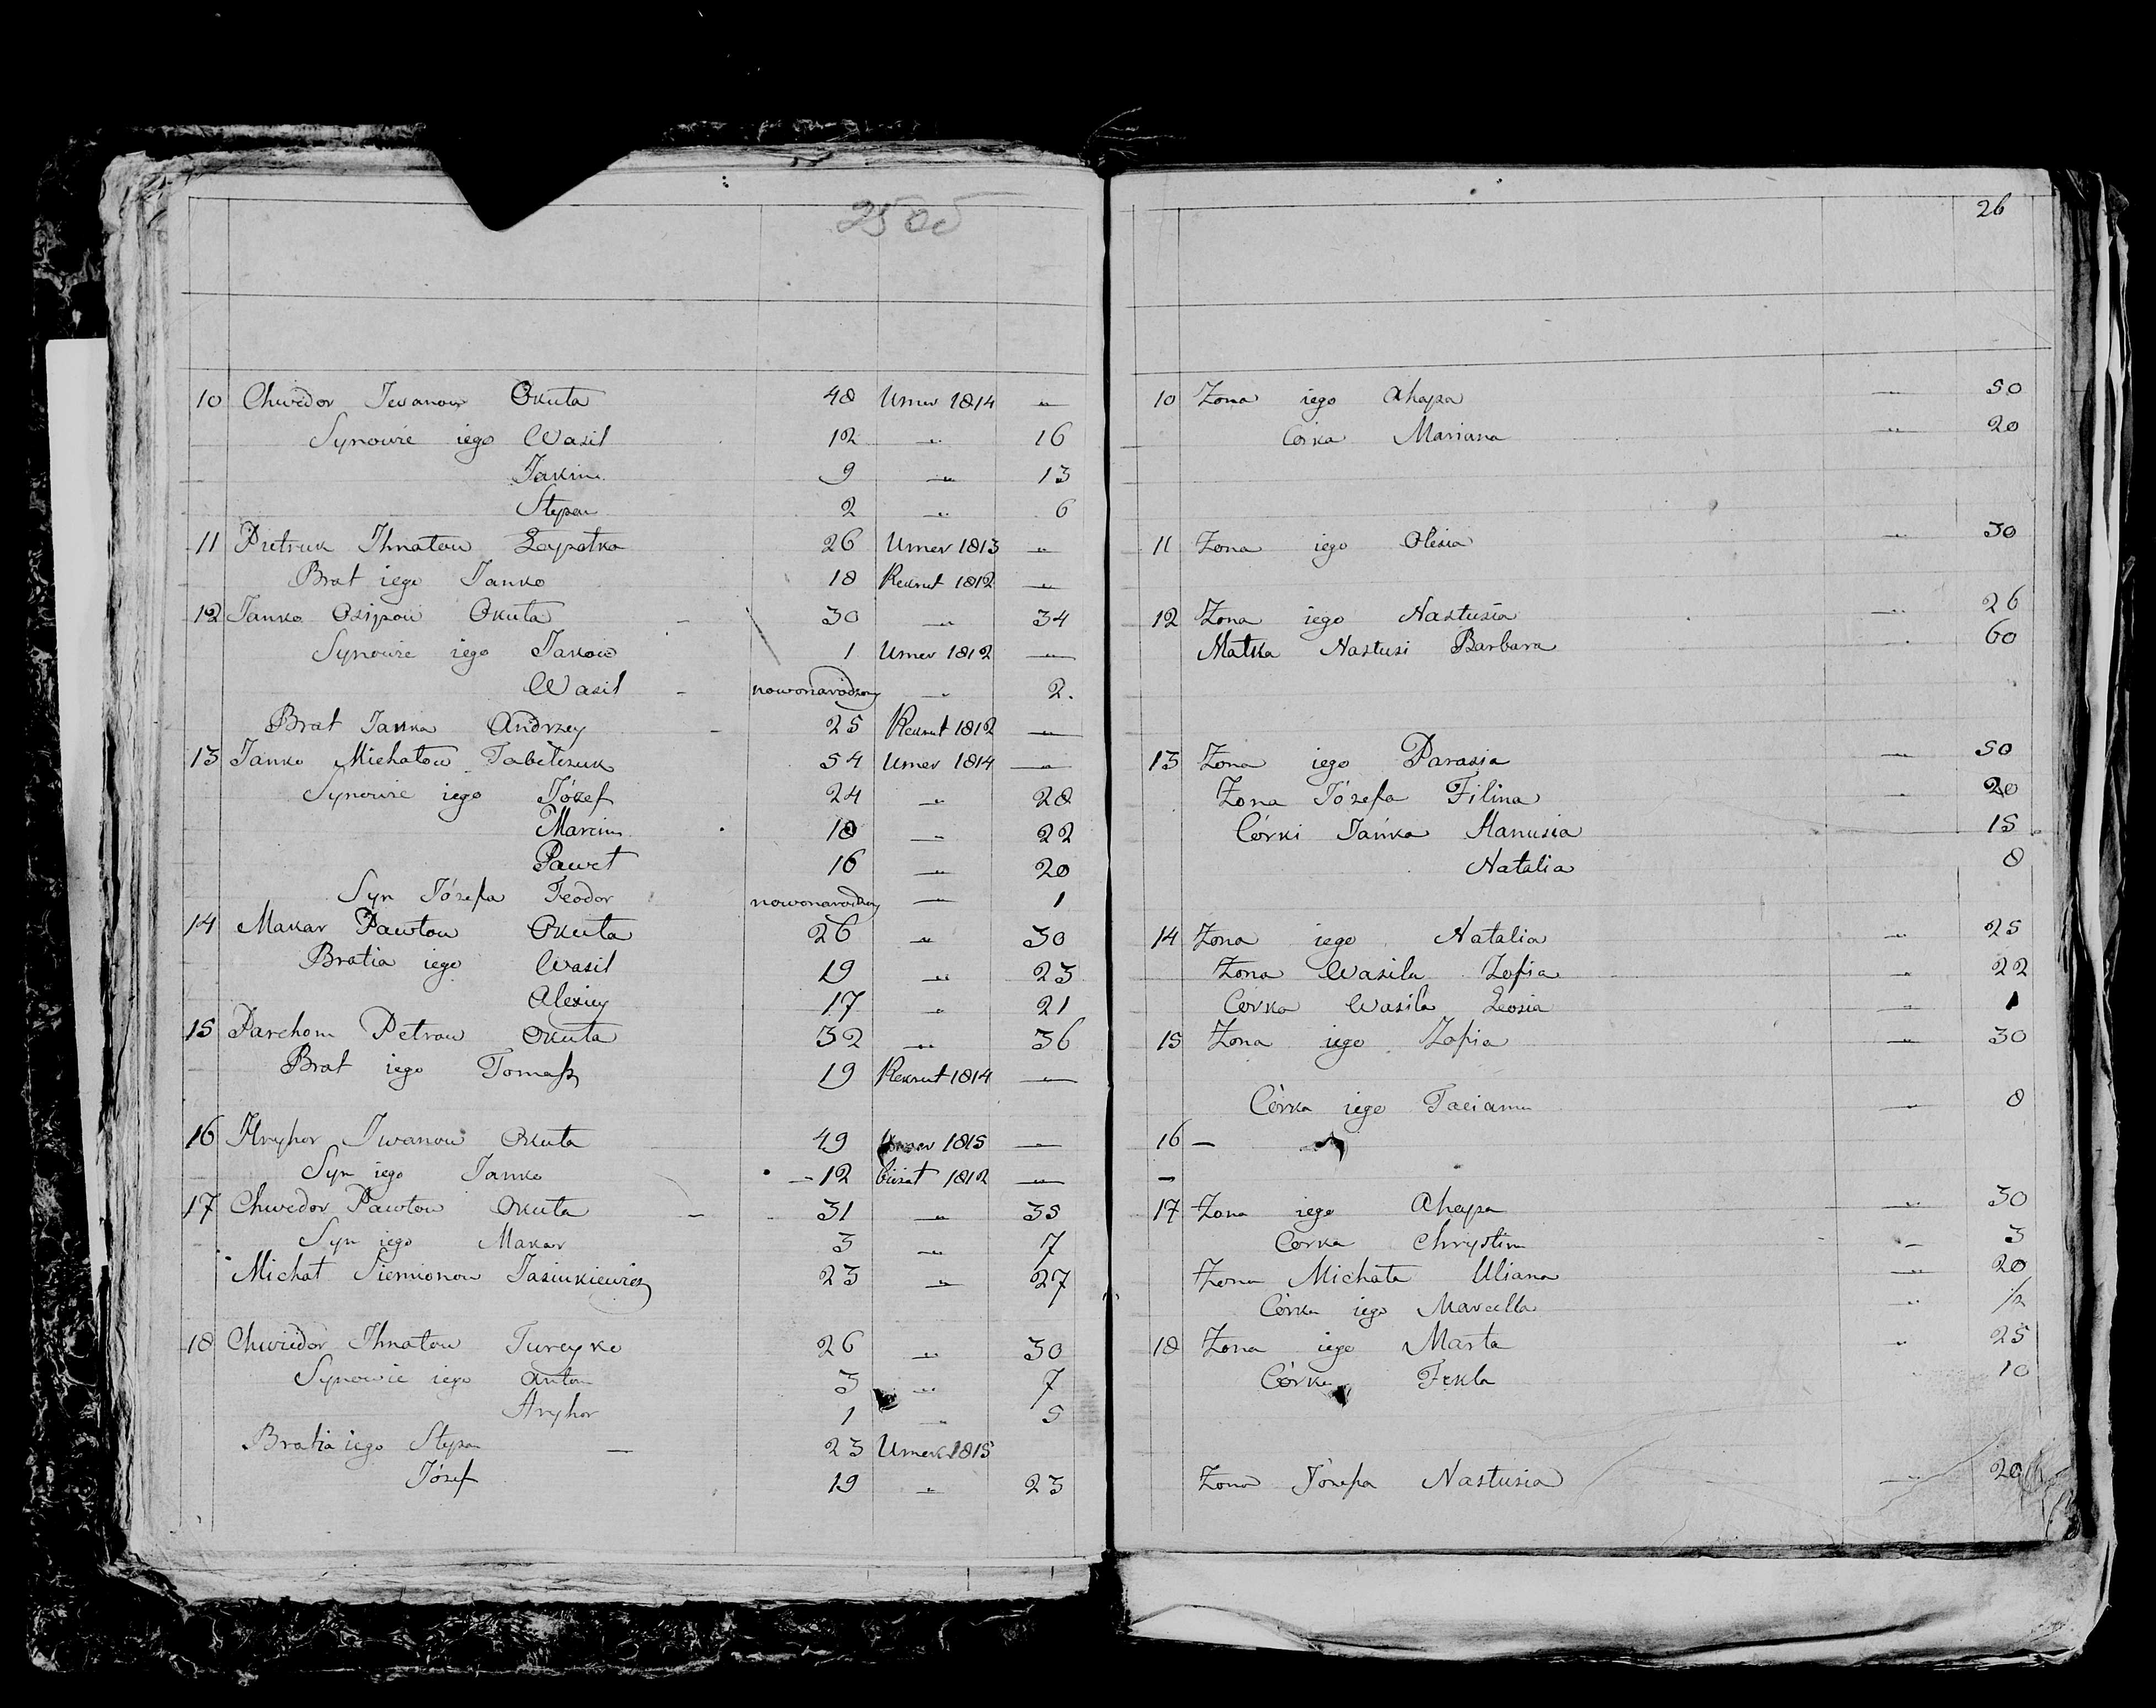 25 об
10 Chwedor Iwanow Okuta 48 Umer 1814 —
Synowie iego Wasil 12 — 16
Jakim 9 — 13
Stepan 2 — 6
11 Pietruk Ihnatow 26 Umer 1813 —
Brat iego Janko 18 Rekrut 1812 —
12 Janko Osipow Okuta 30 — 34
Synowie iego Jakow 1 Umer 1812 —
Wasil nowonarodzony — 2.
Brat Janka Andrzey 25 Rekrut 1812 —
13 Janko Michałow 54 Umer 1814 —
Synowie iego Józef 24 — 28
Marcin 18 — 22
Paweł 16 — 20
Syn Józefa Teodor nowonarodzony — 1
14 Makar Pawłow Okuta 26 — 30
Bratia iego Wasil 19 — 23
Alexiey 17 — 21
15 Parchom Petrow Okuta 32 — 36
Brat iego Tomasz 19 Rekrut 1814 —
16 Hryhor Iwanow Okuta 49 Umer 1815 —
Syn iego Janko 12 1812 —
17 Chwedor Pawłow Okuta 31 — 35
Syn iego Makar 3 — 7
Michał Siemionow Jasiukiewicz 23 — 27
18 Chwiedor Ihnatow Tureyko 26 — 30
Synowie iego Anton 3 — 7
Hryhor 1 — 5
Bratia iego Stepan — 23 Umer 1815
Józef 19 — 23
26
10 Żona iego Ahapa — 50
Córka Mariana — 20
11 Żona iego Olesia — 30
12 Żona iego Nastusia — 26
Matka Nastusi Barbara — 60
13 Żona iego Parasia — 50
Żona Józefa Filina — 20
Córki Jańka Hanusia 15
Natalia 8
14 Żona iego Natalia — 25
Żona Wasila Zofia — 22
Córka Wasila Zosia — 1
15 Żona iego Zofia — 30
Córka iego Taciana — 8
16 —
—
17 Żona iego Ahapa — 30
Córka Chrystina — 3
Żona Michała Uliana — 20
Córka iego Marcella — 1/2
18 Żona iego Marta — 25
Córka Tekla 10
Żona Józefa Nastusia — 20